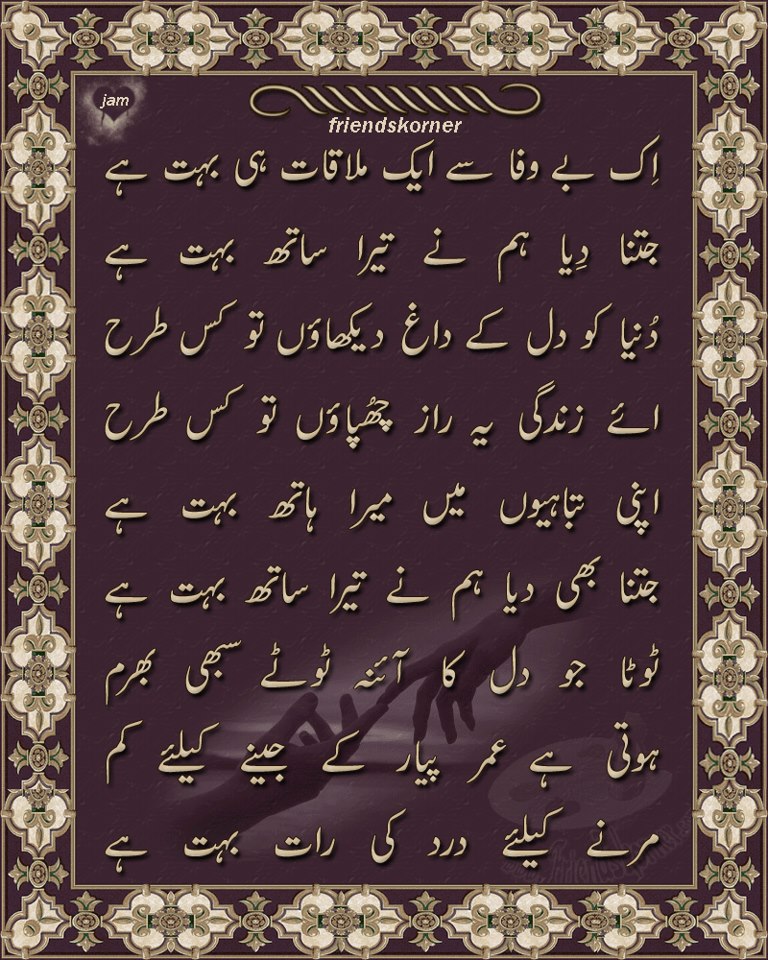 jam
friendskorner
اِک بے وفا سے ایک ملاقات ہی بہت ہے
جتنا دِیا ہم نے تیرا ساتھ بہت ہے
دُنیا کو دل کے داغ دیکھاؤں تو کس طرح
ائے زندگی یہ راز چھُپاؤں تو کس طرح
اپنی تباہیوں میں میرا ہاتھ بہت ہے
جتنا بھی دیا ہم نے تیرا ساتھ بہت ہے
ٹوٹا جو دل کا آئنہ ٹوٹے سبھی بھرم
ہوتی ہے عمر پیار کے جینے کیلئے کم
مرنے کیلئے درد کی رات بہت ہے